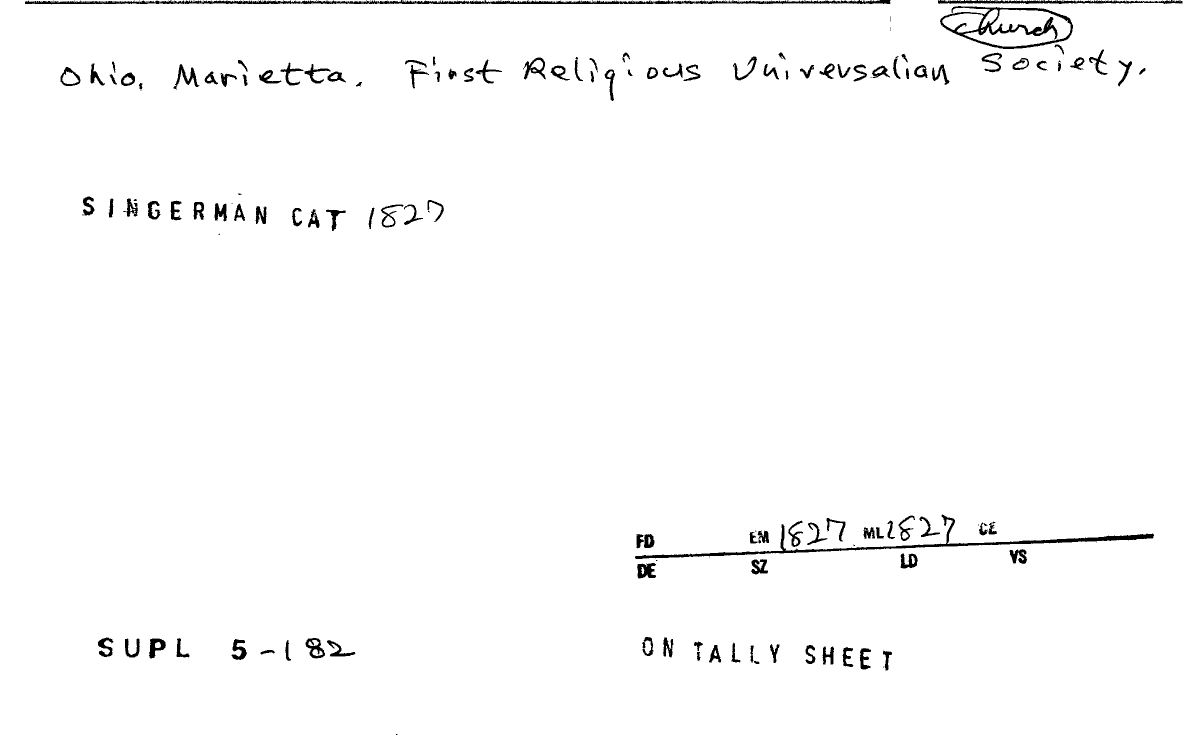 Church
Ohio. Marietta. First Religious Universalian Society.
SINGERMAN CAT 1827
FD EM 1827 ML 1827 CE
DE SZ LD VS
SUPL 5-182
ON TALLY SHEET